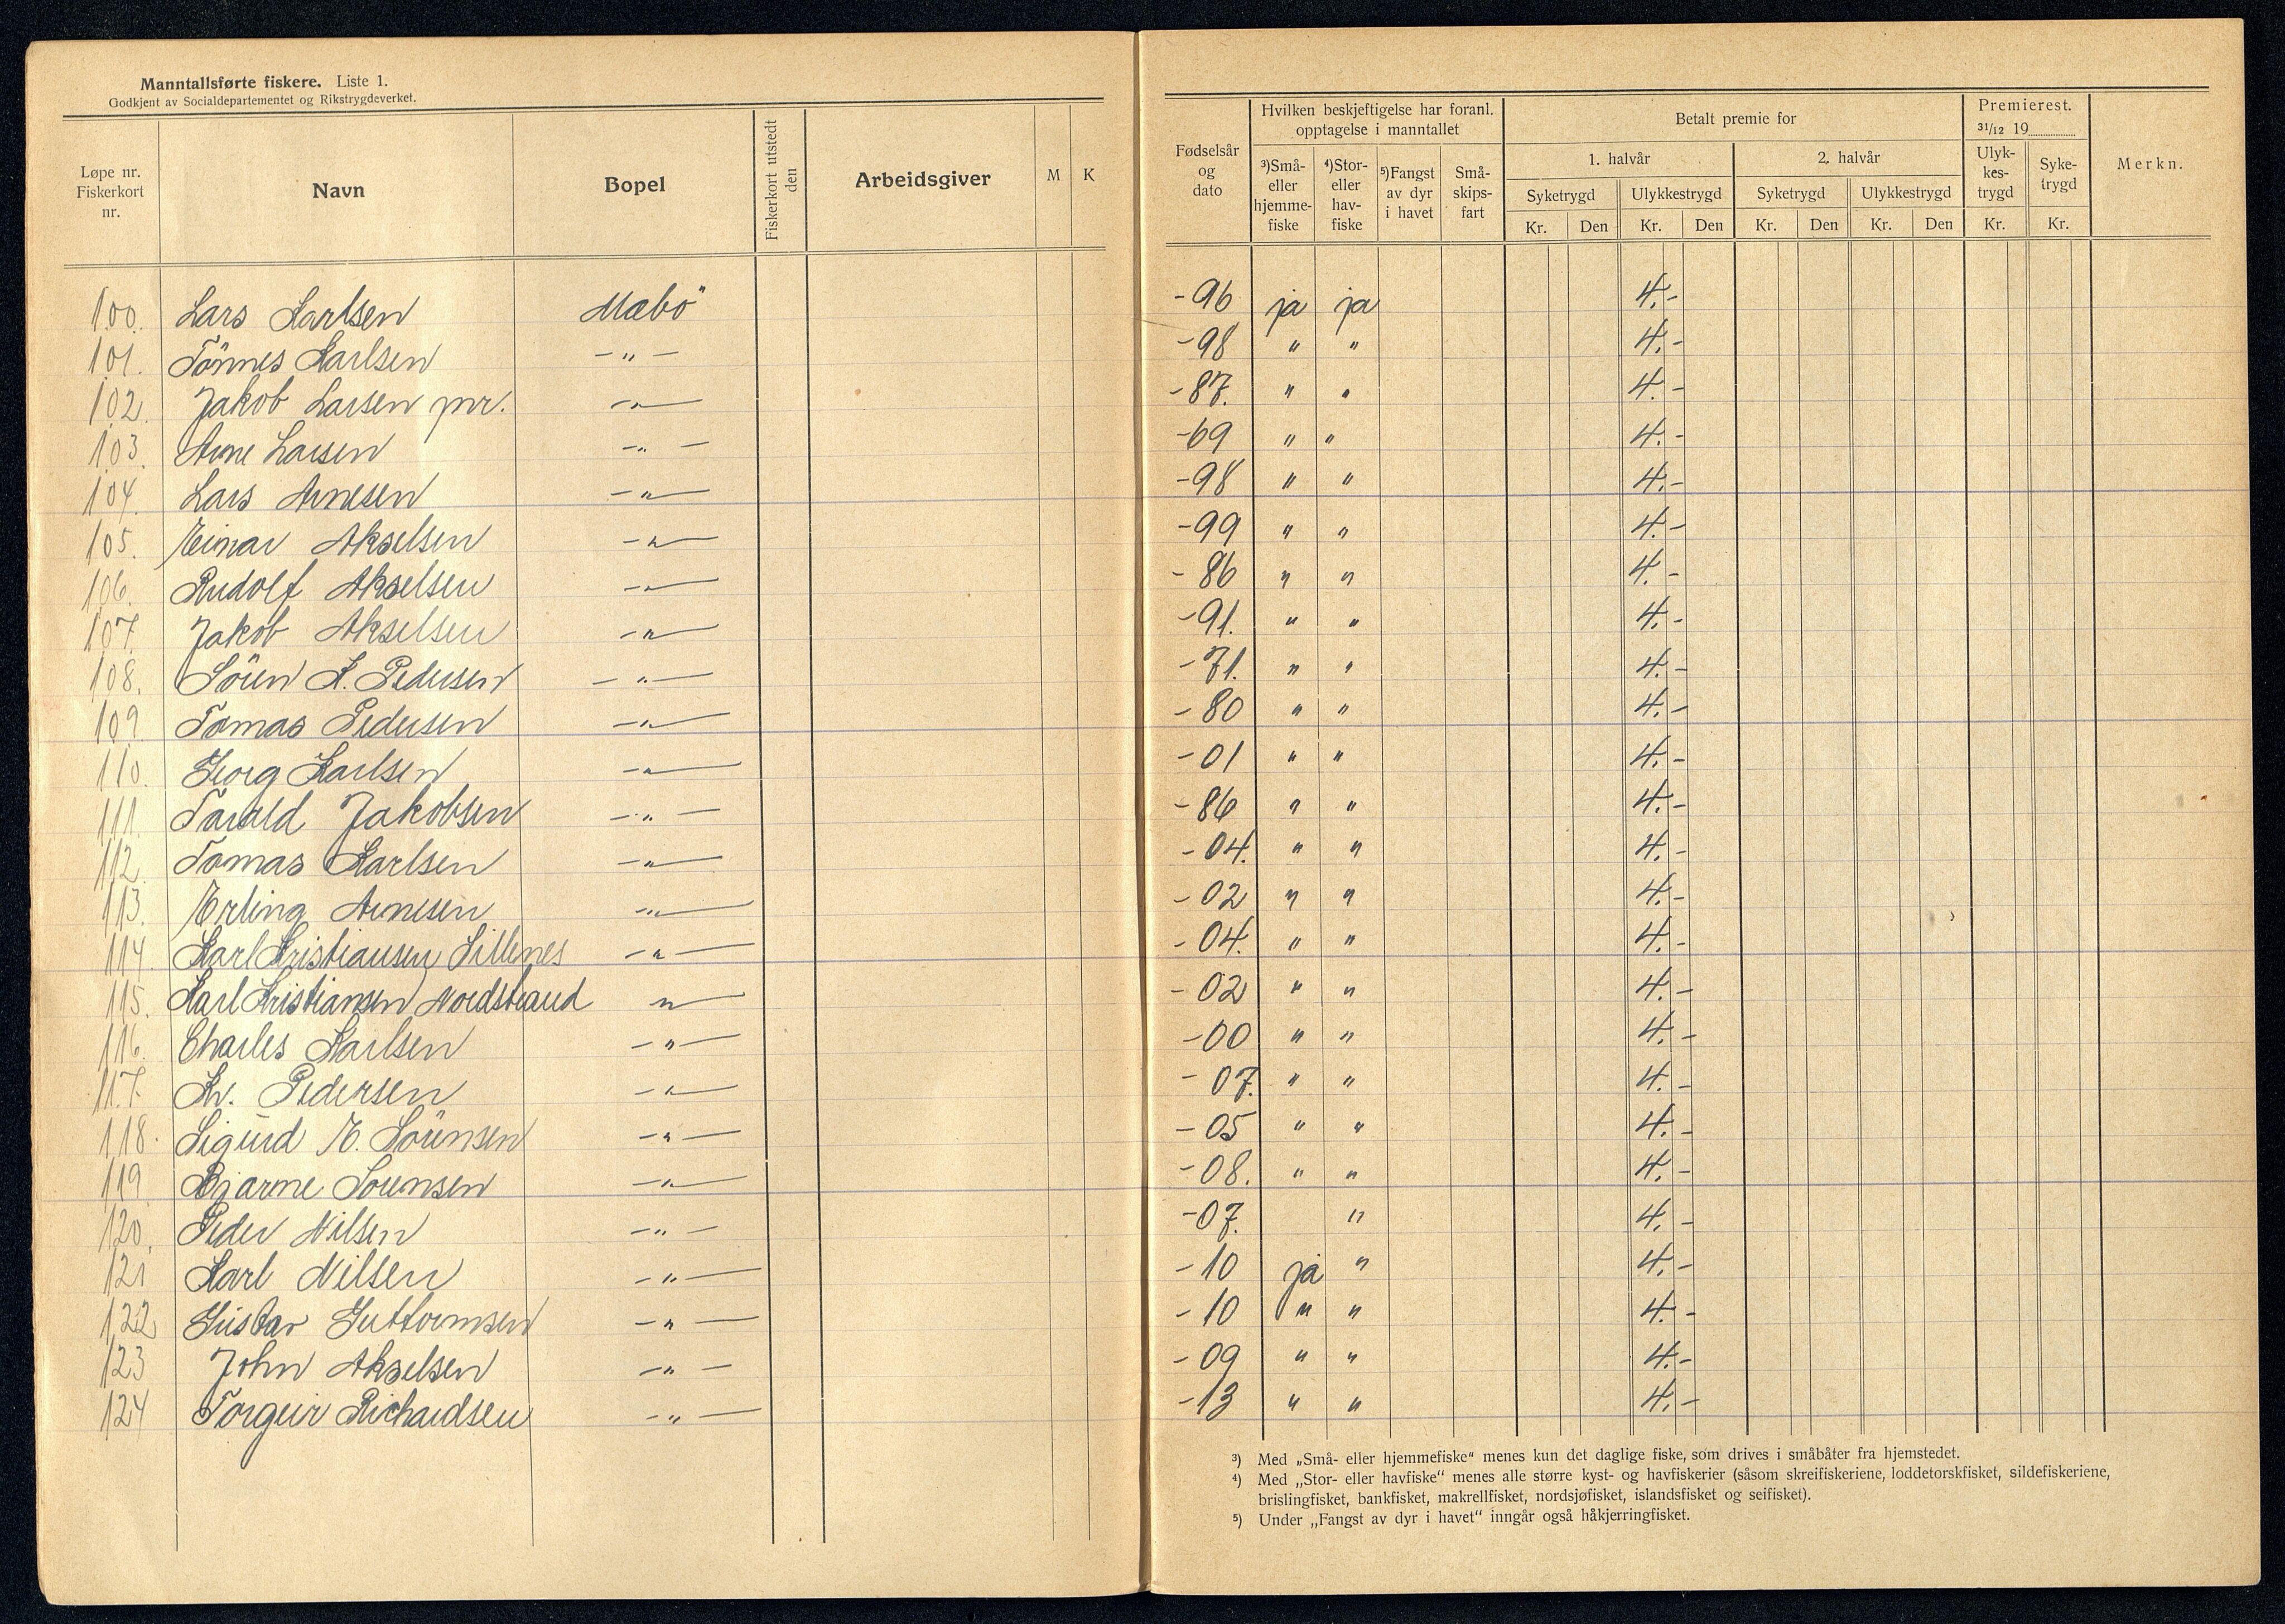 Manntallsførte fiskere. Liste 1.
Godkjent av Socialdepartementet og Rikstrygdeverket.
Løpe nr. Fiskerkort nr. Navn Bopel Fiskerkort utstedt den Arbeidsgiver M K
Fødselsår og dato
Hvilken beskjeftigelse har foranl. opptagelse i manntallet
³)Små- eller hjemme- fiske ⁴)Stor- eller hav- fiske ⁵)Fangst av dyr i havet Små- skips- fart
Betalt premie for
1. halvår 2. halvår
Syketrygd Ulykkestrygd Syketrygd Ulykkestrygd
Kr. Den Kr. Den Kr. Den Kr. Den
Premierest. 31/12 19
Ulyk- kes- trygd Syke- trygd
Kr. Kr.
Merkn.
100. Lars Karlsen Mæbö -96 ja ja 4.-
101. Tönnes Karlsen -"- -98 " " 4.-
102. Jakob Larsen -"- -87. " " 4.-
103. Arne Larsen -"- -69 " " 4.-
104. Lars Arnesen -"- -98 " " 4.-
105. Einar Akselsen -"- -99 " " 4.-
106. Rudolf Akselsen -"- -86 " " 4.-
107. Jakob Akselsen -"- -91. " " 4.-
108. Sören K. Pedersen -"- -71. " " 4.-
109. Tomas Pedersen -"- -80 " " 4.-
110. Georg Karlsen -"- -01 " " 4.-
111. Tarald Jakobsen -"- -86 " " 4.-
112. Tomas Karlsen -"- -04. " " 4.-
113. Erling Arnesen -"- -02 " " 4.-
114. Karl Kristiansen Sillenes -"- -04. " " 4.-
115. Karl Kristiansen Nordstrand "- -02 " " 4.-
116. Charles Karlsen -"- -00 " " 4.-
117. Kr. Pedersen -"- -07. " " 4.-
118. Sigurd E. Sörensen -"- -05 " " 4.-
119 Bjarne Sörensen -"- -08. " " 4.-
120. Peder Nilsen -"- -07. " 4.-
121 Karl Nilsen -"- -10 ja " 4.-
122 Gustav Guttormsen -"- -10 " " 4.-
123 John Akselsen -"- -09 " " 4.-
124 Torgeir Richardsen -"- -13 " " 4.-
³) Med „Små- eller hjemmefiske" menes kun det daglige fiske, som drives i småbåter fra hjemstedet.
⁴) Med „Stor- eller havfiske" menes alle større kyst- og havfiskerier (såsom skreifiskeriene, loddetorskfisket, sildefiskeriene,
brislingfisket, bankfisket, makrellfisket, nordsjøfisket, islandsfisket og seifisket).
⁵) Under „Fangst av dyr i havet" inngår også håkjerringfisket.